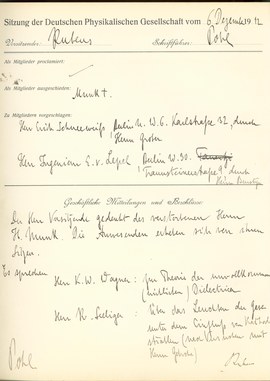 Sitzung der Deutschen Physikalischen Gesellschaft vom 6. Dezember 1912
Vorsitzender: Rubens Schriftführer: Pohl
Als Mitglieder proklamiert:
Als Mitglieder ausgeschieden:
Munk †
Zu Mitgliedern vorgeschlagen:
Herr Erich Schneeweiß, Berlin N.W. 6. Karlstraße 32, durch
Herrn
Herr Ingenieur E. v. Lepel, Berlin W. 30.
Traunsteinerstraße 9 durch
Herrn
Geschäftliche Mitteilungen und Beschlüsse:
Der Herr Vorsitzende gedenkt des verstorbenen Herrn
H. Munk. Die Anwesenden erheben sich von ihren
Sitzen.
Es sprechen
Herr K. W. Wagner: Zur Theorie der unvollkommenen
Dielectrica
Herr R. Seeliger: Über das Leuchten der Gase
unter dem Einfluss von Kathoden
strahlen (nach Versuchen mit
Herrn Gehrcke)
Pohl Rubens